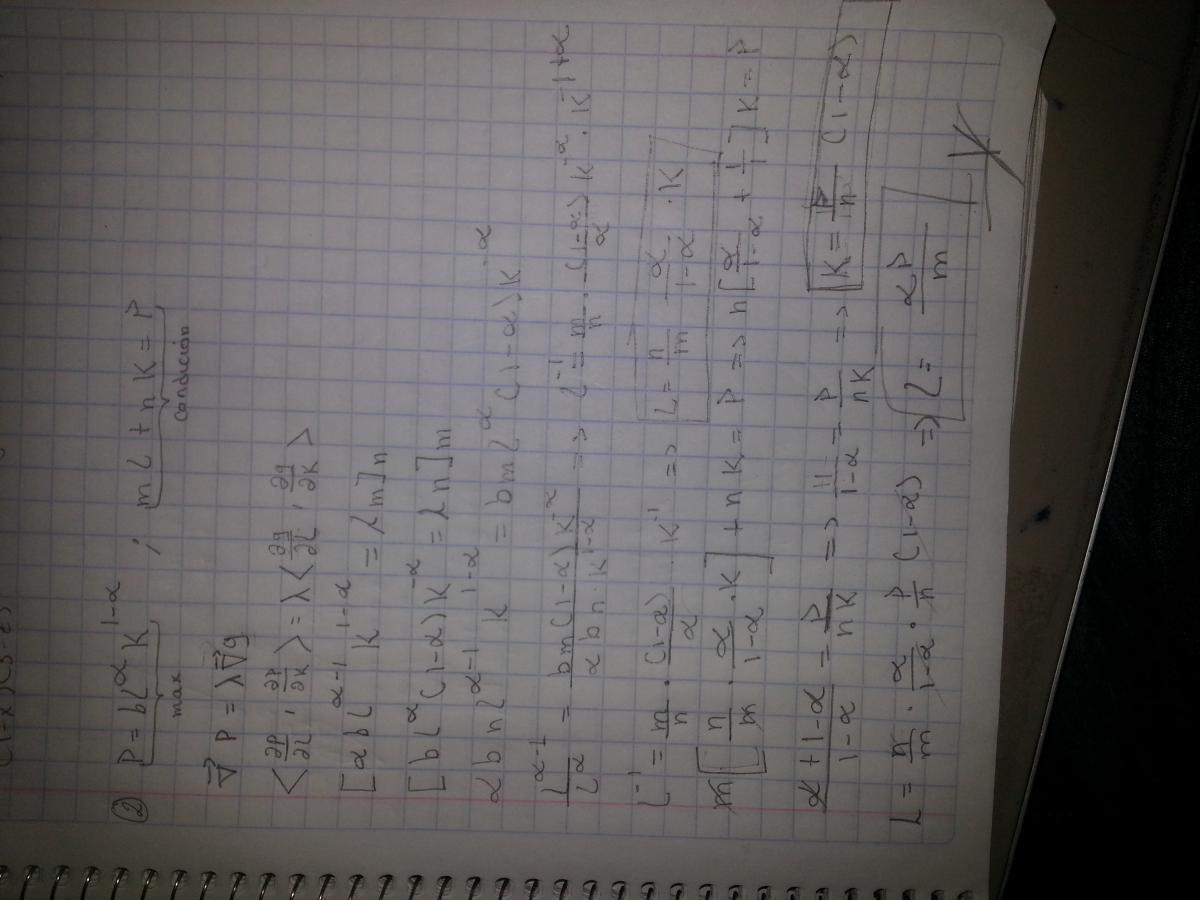 ② P = bL^α K^(1-α) ; mL + nK = P
max condición
∇P = λ∇g
< ∂P/∂L , ∂P/∂K > = λ < ∂g/∂L , ∂g/∂K >
[αbL^(α-1) K^(1-α) = λm] n
[bL^α (1-α) K^(-α) = λn] m
αbnL^(α-1) K^(1-α) = bmL^α (1-α) K^(-α)
L^(α-1)/L^α = bm(1-α)K^(-α) / αbn·K^(1-α) => L^(-1) = m/n · (1-α)/α K^(-α) · K^(-1+α)
L^(-1) = m/n · (1-α)/α · K^(-1) => L = n/m · α/(1-α) · K
m[n/m · α/(1-α) · K] + nK = P => n[α/(1-α) + 1/1]K = P
(α+1-α)/(1-α) = P/nK => 1/(1-α) = P/nK => K = P/n (1-α)
L = n/m · α/(1-α) · P/n (1-α) => L = αP/m